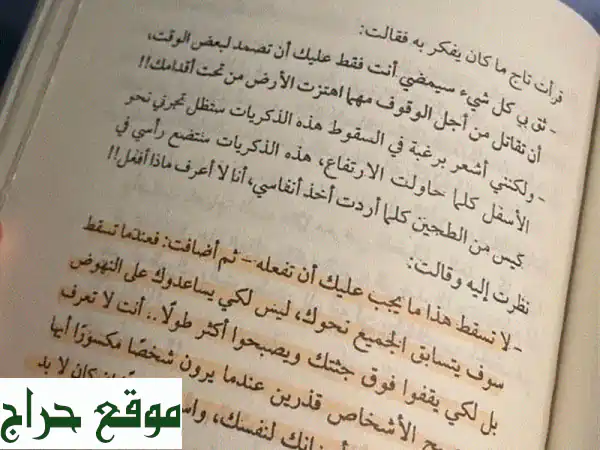 قرأت تاج ما كان يفكر به فقالت:
- ثق بي كل شيء سيمضي أنت فقط عليك أن تصمد لبعض الوقت،
أن تقاتل من أجل الوقوف مهما اهتزت الأرض من تحت أقدامك!!
- ولكنني أشعر برغبة في السقوط هذه الذكريات ستظل تجرني نحو
الأسفل كلما حاولت الارتفاع، هذه الذكريات ستضع رأسي في
كيس من الطحين كلما أردت أخذ أنفاسي، أنا لا أعرف ماذا أفعل!!
نظرت إليه وقالت:
- لا تسقط هذا ما يجب عليك أن تفعله - ثم أضافت: فعندما تسقط
سوف يتسابق الجميع نحوك، ليس لكي يساعدوك على النهوض
بل لكي يقفوا فوق جثتك ويصبحوا أكثر طولًا .. أنت لا تعرف
الأشخاص قذرين عندما يرون شخصًا مكسورًا أيها
لنفسك، كان لا بد
موقع حراج